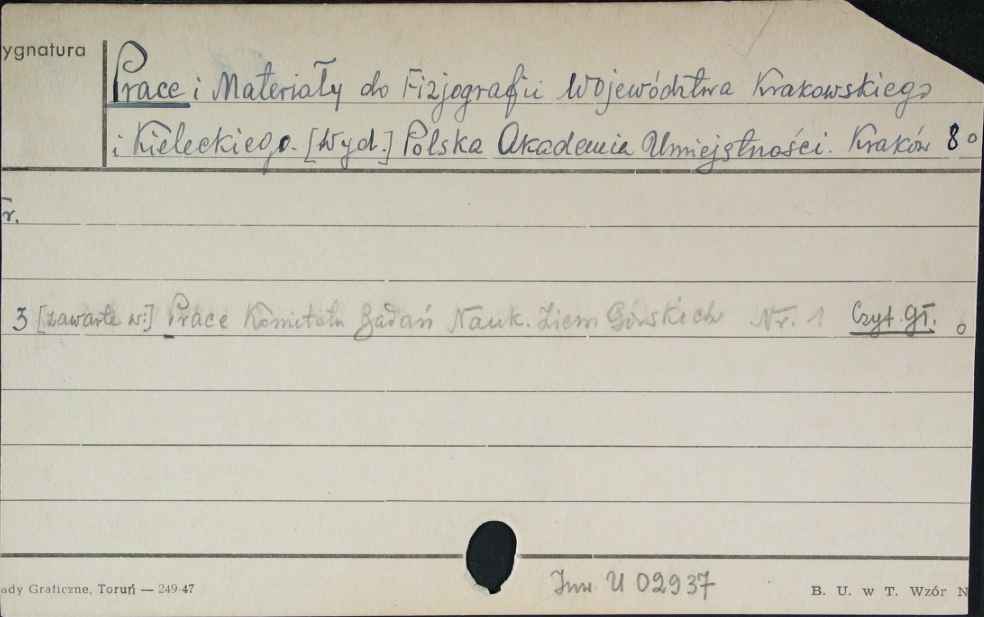 ygnatura
Prace i Materiały do Fizjografii Województwa Krakowskiego
i Kieleckiego. [Wyd.] Polska Akademia Umiejętności. Kraków 8o
r.
3 [zawarte w:] Prace Komitetu Badań Nauk. Ziem Górskich Nr. 1 Czyt. Gł. o
ady Graficzne, Toruń — 249-47
Inw. U 02937
B. U. w T. Wzór N